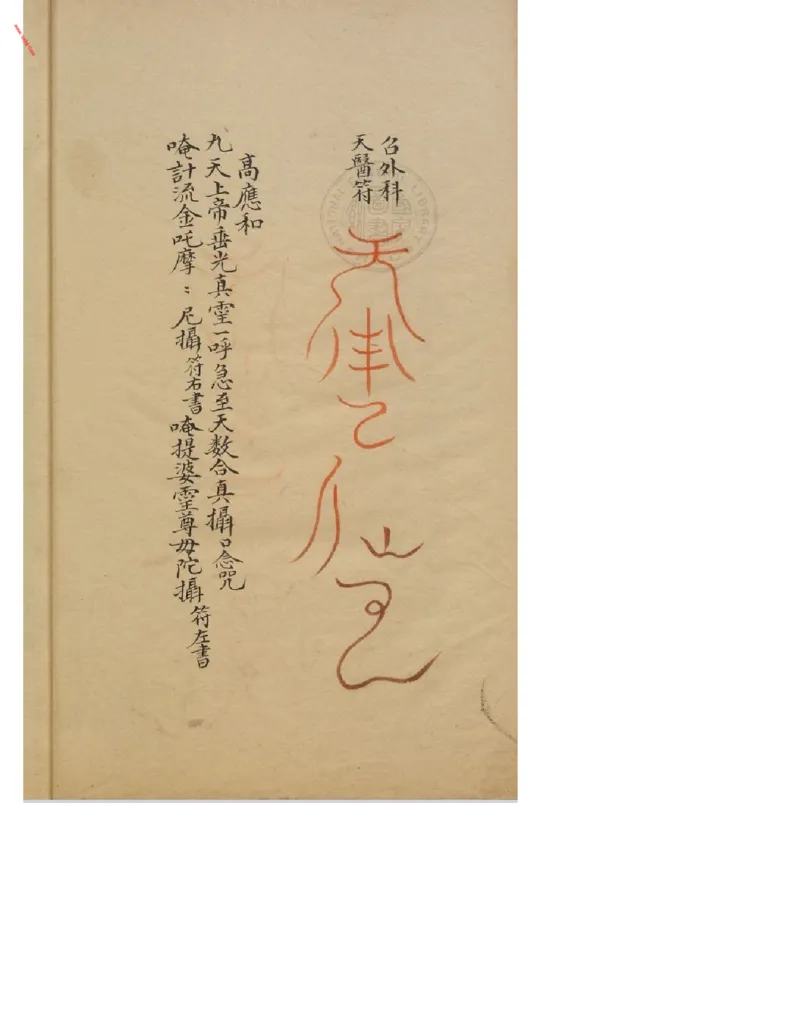 召外科
天醫符
高應和
九天上帝垂光真靈一呼急至天数合真攝口念咒
唵計流金吒摩〻尼攝符右書唵提婆靈尊毋陀攝符左書
NATIONAL LIBRARY